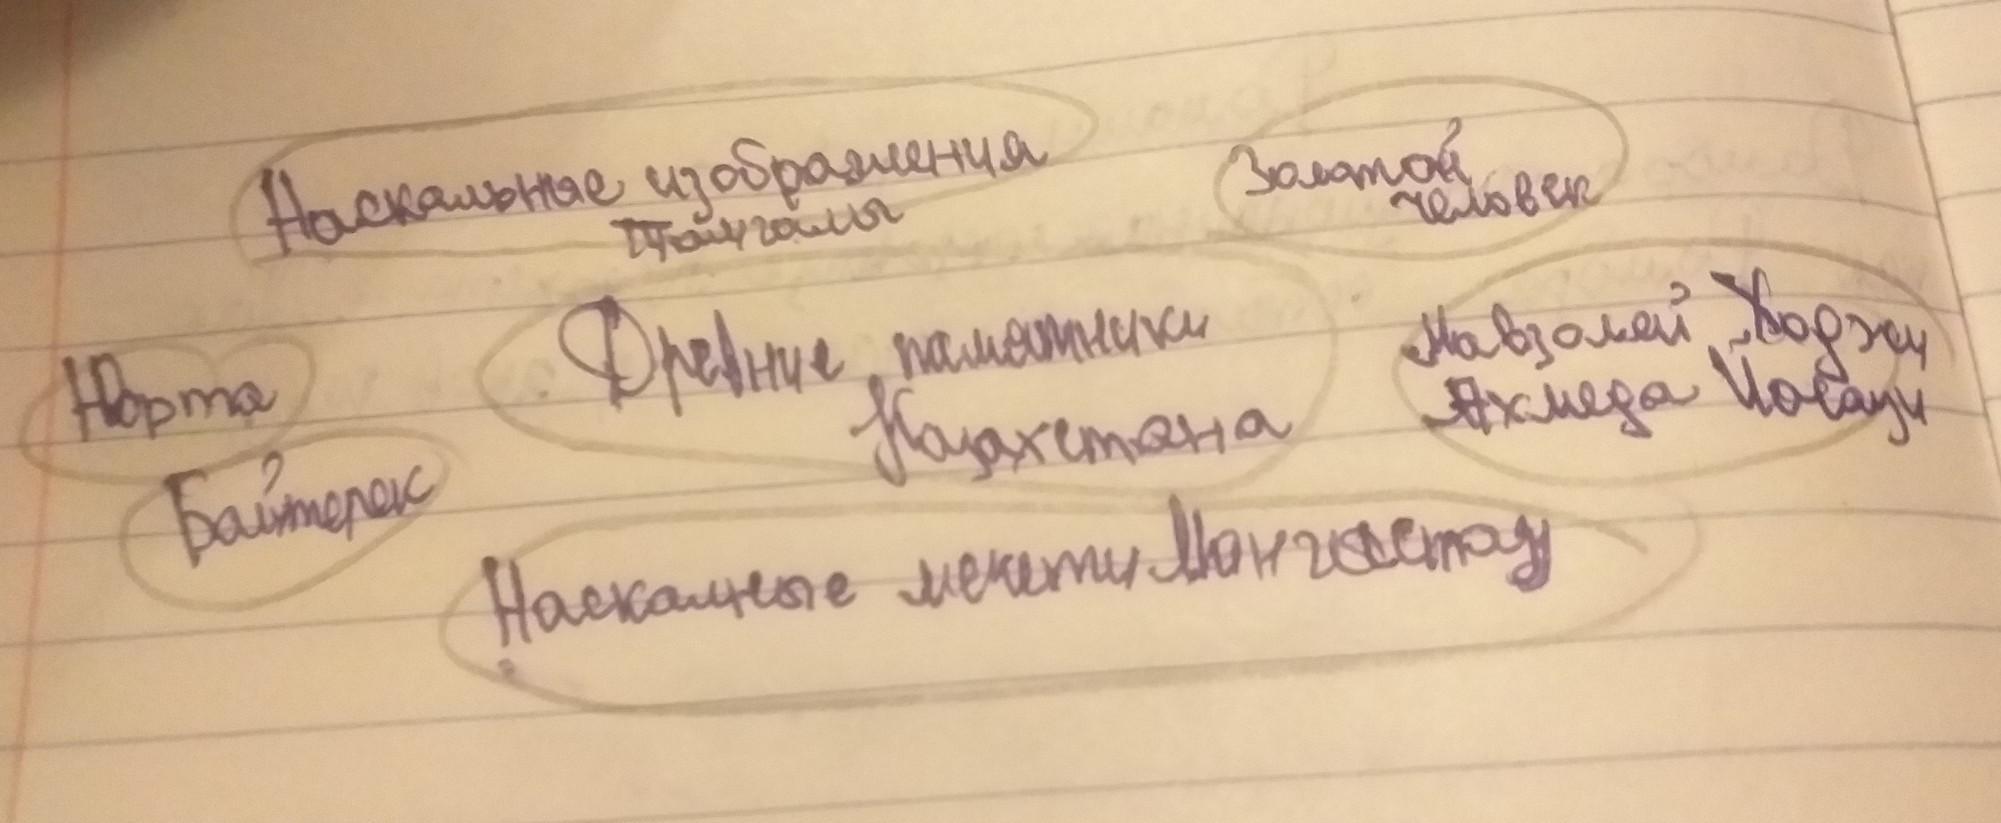 Наскальные изображения
Тамгалы
Золотой
человек
Древние памятники
Казахстана
Мавзолей Ходжи
Ахмеда Йасауи
Юорта
Байтерек
Наскальные мечети Мангыстау